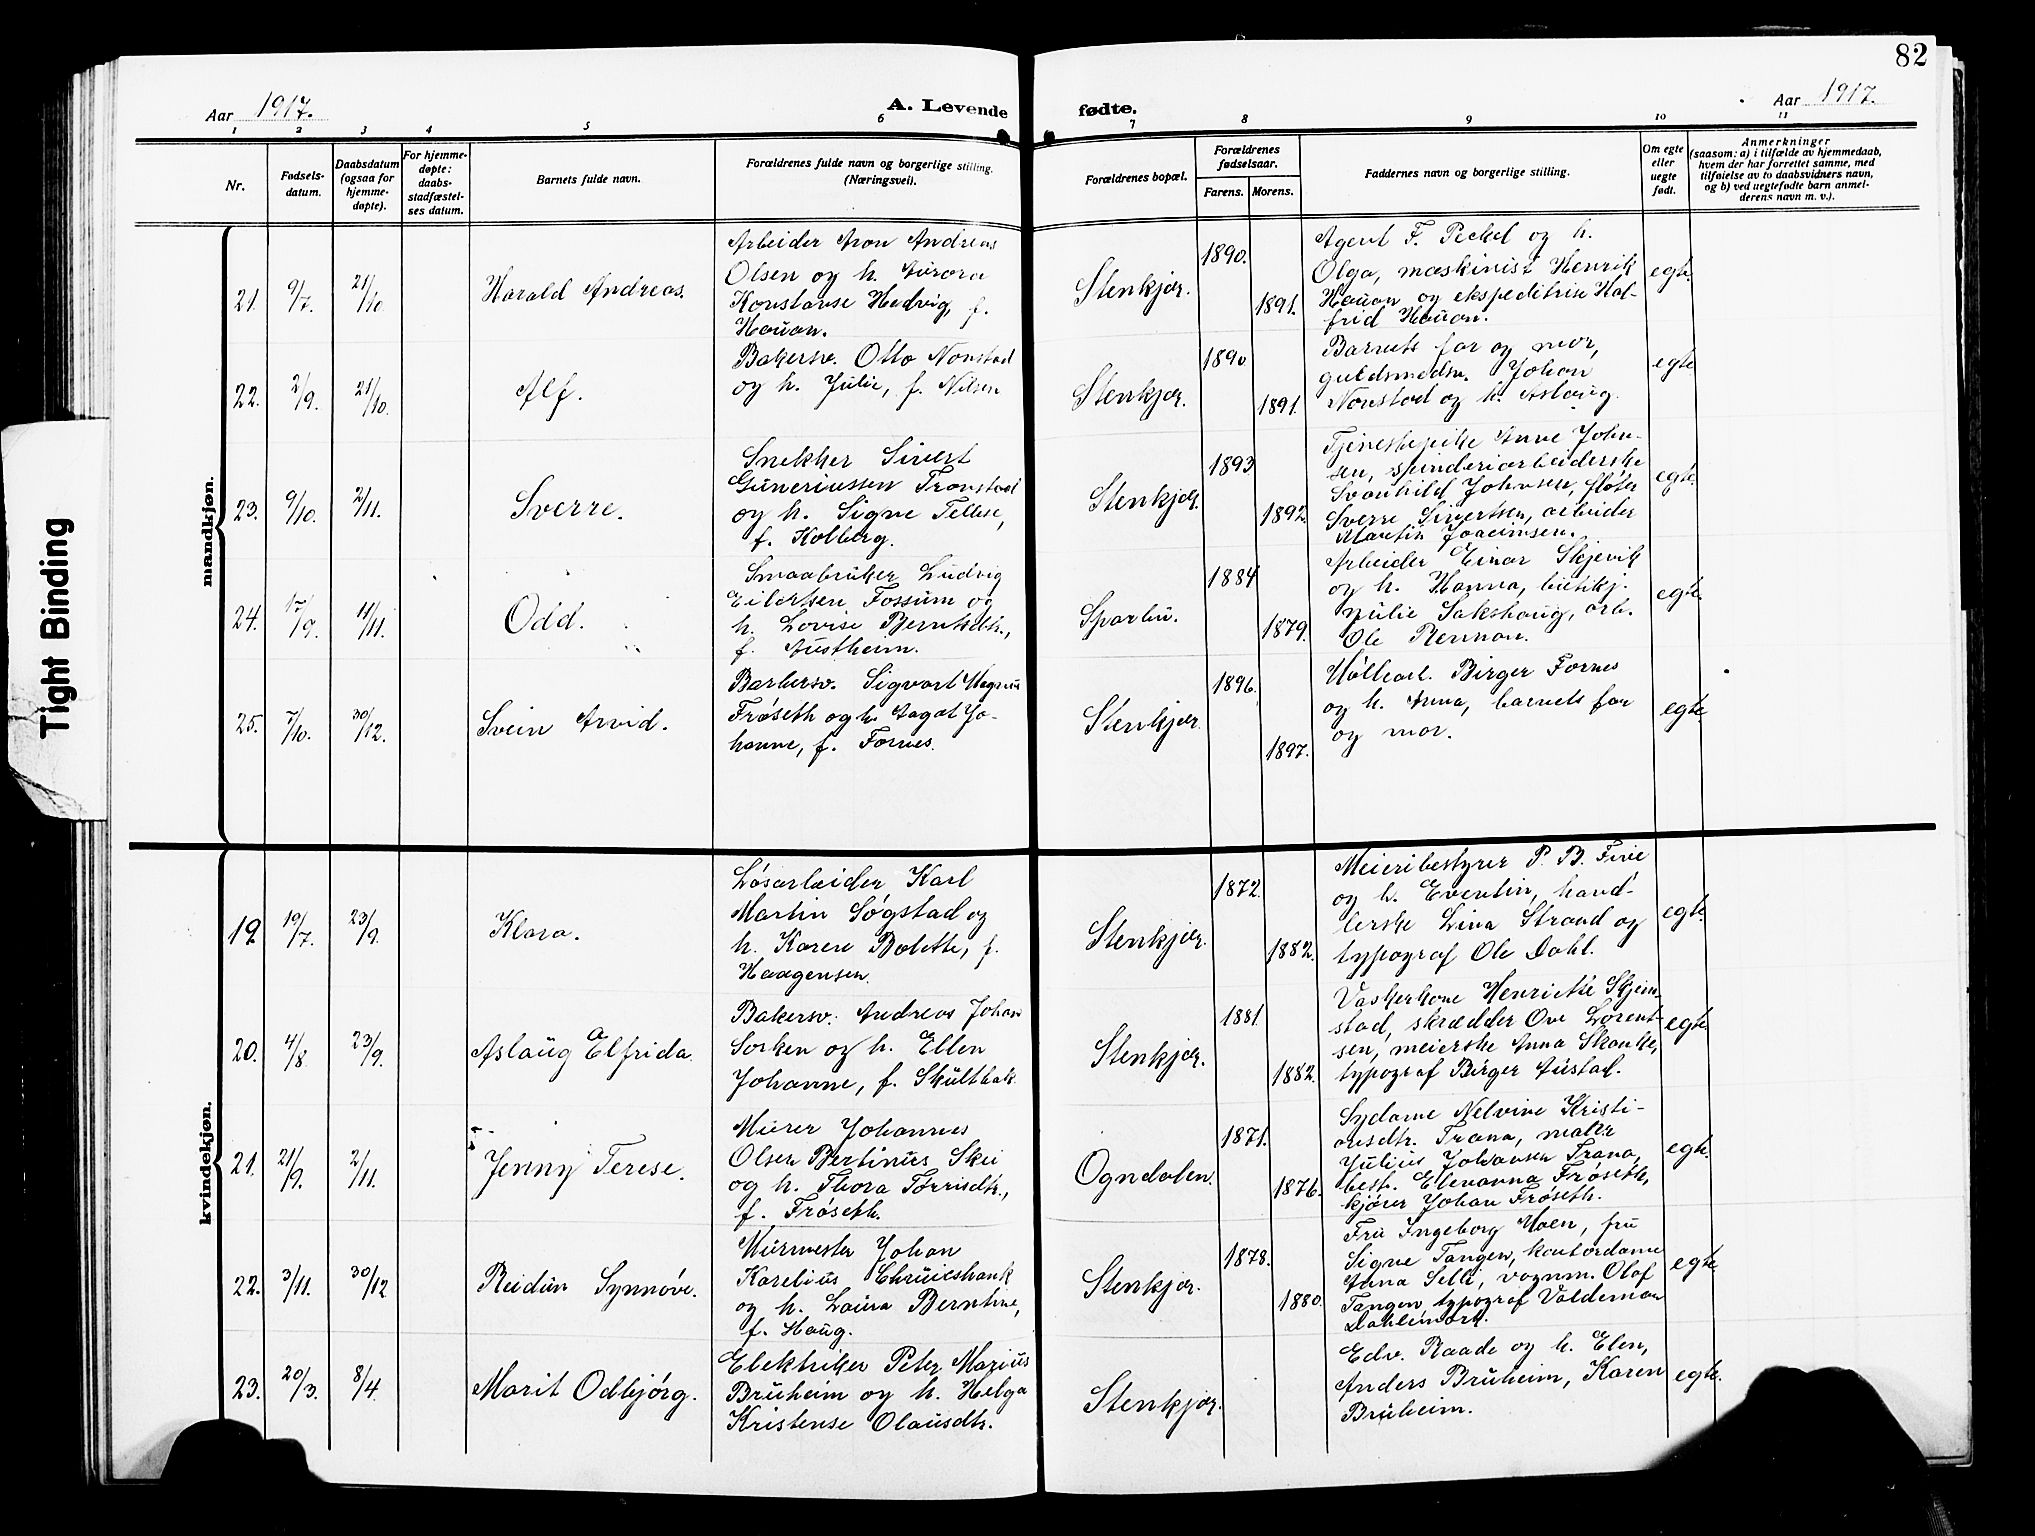 82
Aar 1917. A. Levende fødte. Aar 1917.
1 2 3 4 5 6 7 8 9 10 11
Nr.
Fødsels-
datum.
Daabsdatum
(ogsaa for
hjemme-
døpte).
For hjemme-
døpte:
daabs-
stadfæstel-
ses datum.
Barnets fulde navn.
Forældrenes fulde navn og borgerlige stilling.
(Næringsvei).
Forældrenes bopæl.
Forældrenes
fødselsaar.
Farens. Morens.
Faddernes navn og borgerlige stilling.
Om egte
eller
uegte
født.
Anmerkninger
(saasom: a) i tilfælde av hjemmedaab,
hvem der har forrettet samme, med
tilføielse av to daabsvidners navn,
og b) ved uegtefødte barn anmel-
derens navn m. v.).
Tight Binding
mandkjøn.
21. 9/7. 21/10. Harald Andreas.
Arbeider Aron Andreas
Olsen og h. Aurora
Konstanse Hedvig, f.
Hauan.
Stenkjær. 1890. 1891.
Agent F. Peckel og h.
Olga, maskinist Henrik
Hauan og ekspeditrise Hal-
frid Hauan.
egte
22. 2/9. 21/10. Alf.
Bakersv. Otto Nonstad
og h. Julie, f. Nilsen
Stenkjær. 1890 1891.
Barnets far og mor,
guldsmedsv. Johan
Nonstad og h. Aslaug.
egte
23. 9/10. 2/11. Sverre.
Snekker Sivert
Guneriussen Tronstad
og h. Signe Tellese,
f. Kolberg.
Stenkjær. 1893 1892.
Tjenestepike Anne John-
sen, spinderiarbeiderske
Svanhild Johnsen, fløter
Sverre Sivertsen, arbeider
Martin Joacimsen.
egte.
24. 17/9. 11/11. Odd.
Smaabruker Ludvig
Eilertsen Fossum og
h. Lovise Berntsdtr.,
f. Austheim.
Sparbu. 1884 1879.
Arbeider Einar Skjevik
og h. Hanna, butikj.
Julie Sakshaug, arb.
Ole Rennan.
egte.
25. 7/10. 30/12. Svein Arvid.
Barbersv. Sigvart Magnus
Frøseth og h. Aagot Jo-
hanne, f. Fornes.
Stenkjær 1896. 1897.
Birger Fornes
og h. Anna, barnets far
og mor.
egte
kvindekjøn.
19. 19/7. 23/9. Klara.
Løsarbeider Karl
Martin Søgstad og
h. Karen Bolette, f.
Haagensen
Stenkjær. 1872. 1882.
Meieribestyrer P. B. Five
og h. Eventin, hand-
lerske Lina Strand og
typograf Ole Dahl.
egte.
20. 4/8. 23/9. Aslaug Elfrida.
Bakersv. Andreas Johan
Sorken og h. Ellen
Johanne, f. Skultbak
Stenkjær. 1881. 1882.
Vaskerkone Henriette Skjem-
stad, skrædder Ove Lorent-
sen, meierske Anna Skanke,
typograf Birger Austad.
egte
21. 21/9. 2/11. Jenny Terese.
Murer Johannes
Olsen Bertinus Skei
og h. Thora Torrisdtr.,
f. Frøseth.
Ogndalen. 1871. 1876.
Sydame Nelvine Kristi-
ansdtr. Trana, maler
Julius Johansen Trana,
best. Elenanna Frøseth,
kjører Johan Frøseth.
egte.
22. 3/11. 30/12 Reidun Synnøve.
Murmester Johan
Karelius
og h. Laura Berntine,
f. Haug.
Stenkjær. 1878. 1880.
Fru Ingeborg Moen, fru
Signe Tangen, kontordame
Anna Selli, vognm. Olaf
Tangen, typograf Valdemar
egte
23. 20/3. 8/4. Marit Odbjørg.
Elektriker Peter Marius
Bruheim og h. Helga
Kristense Olausdtr.
Stenkjær.
Edv. Raade og h. Elen,
Anders Bruheim, Karen
Bruheim.
egte.